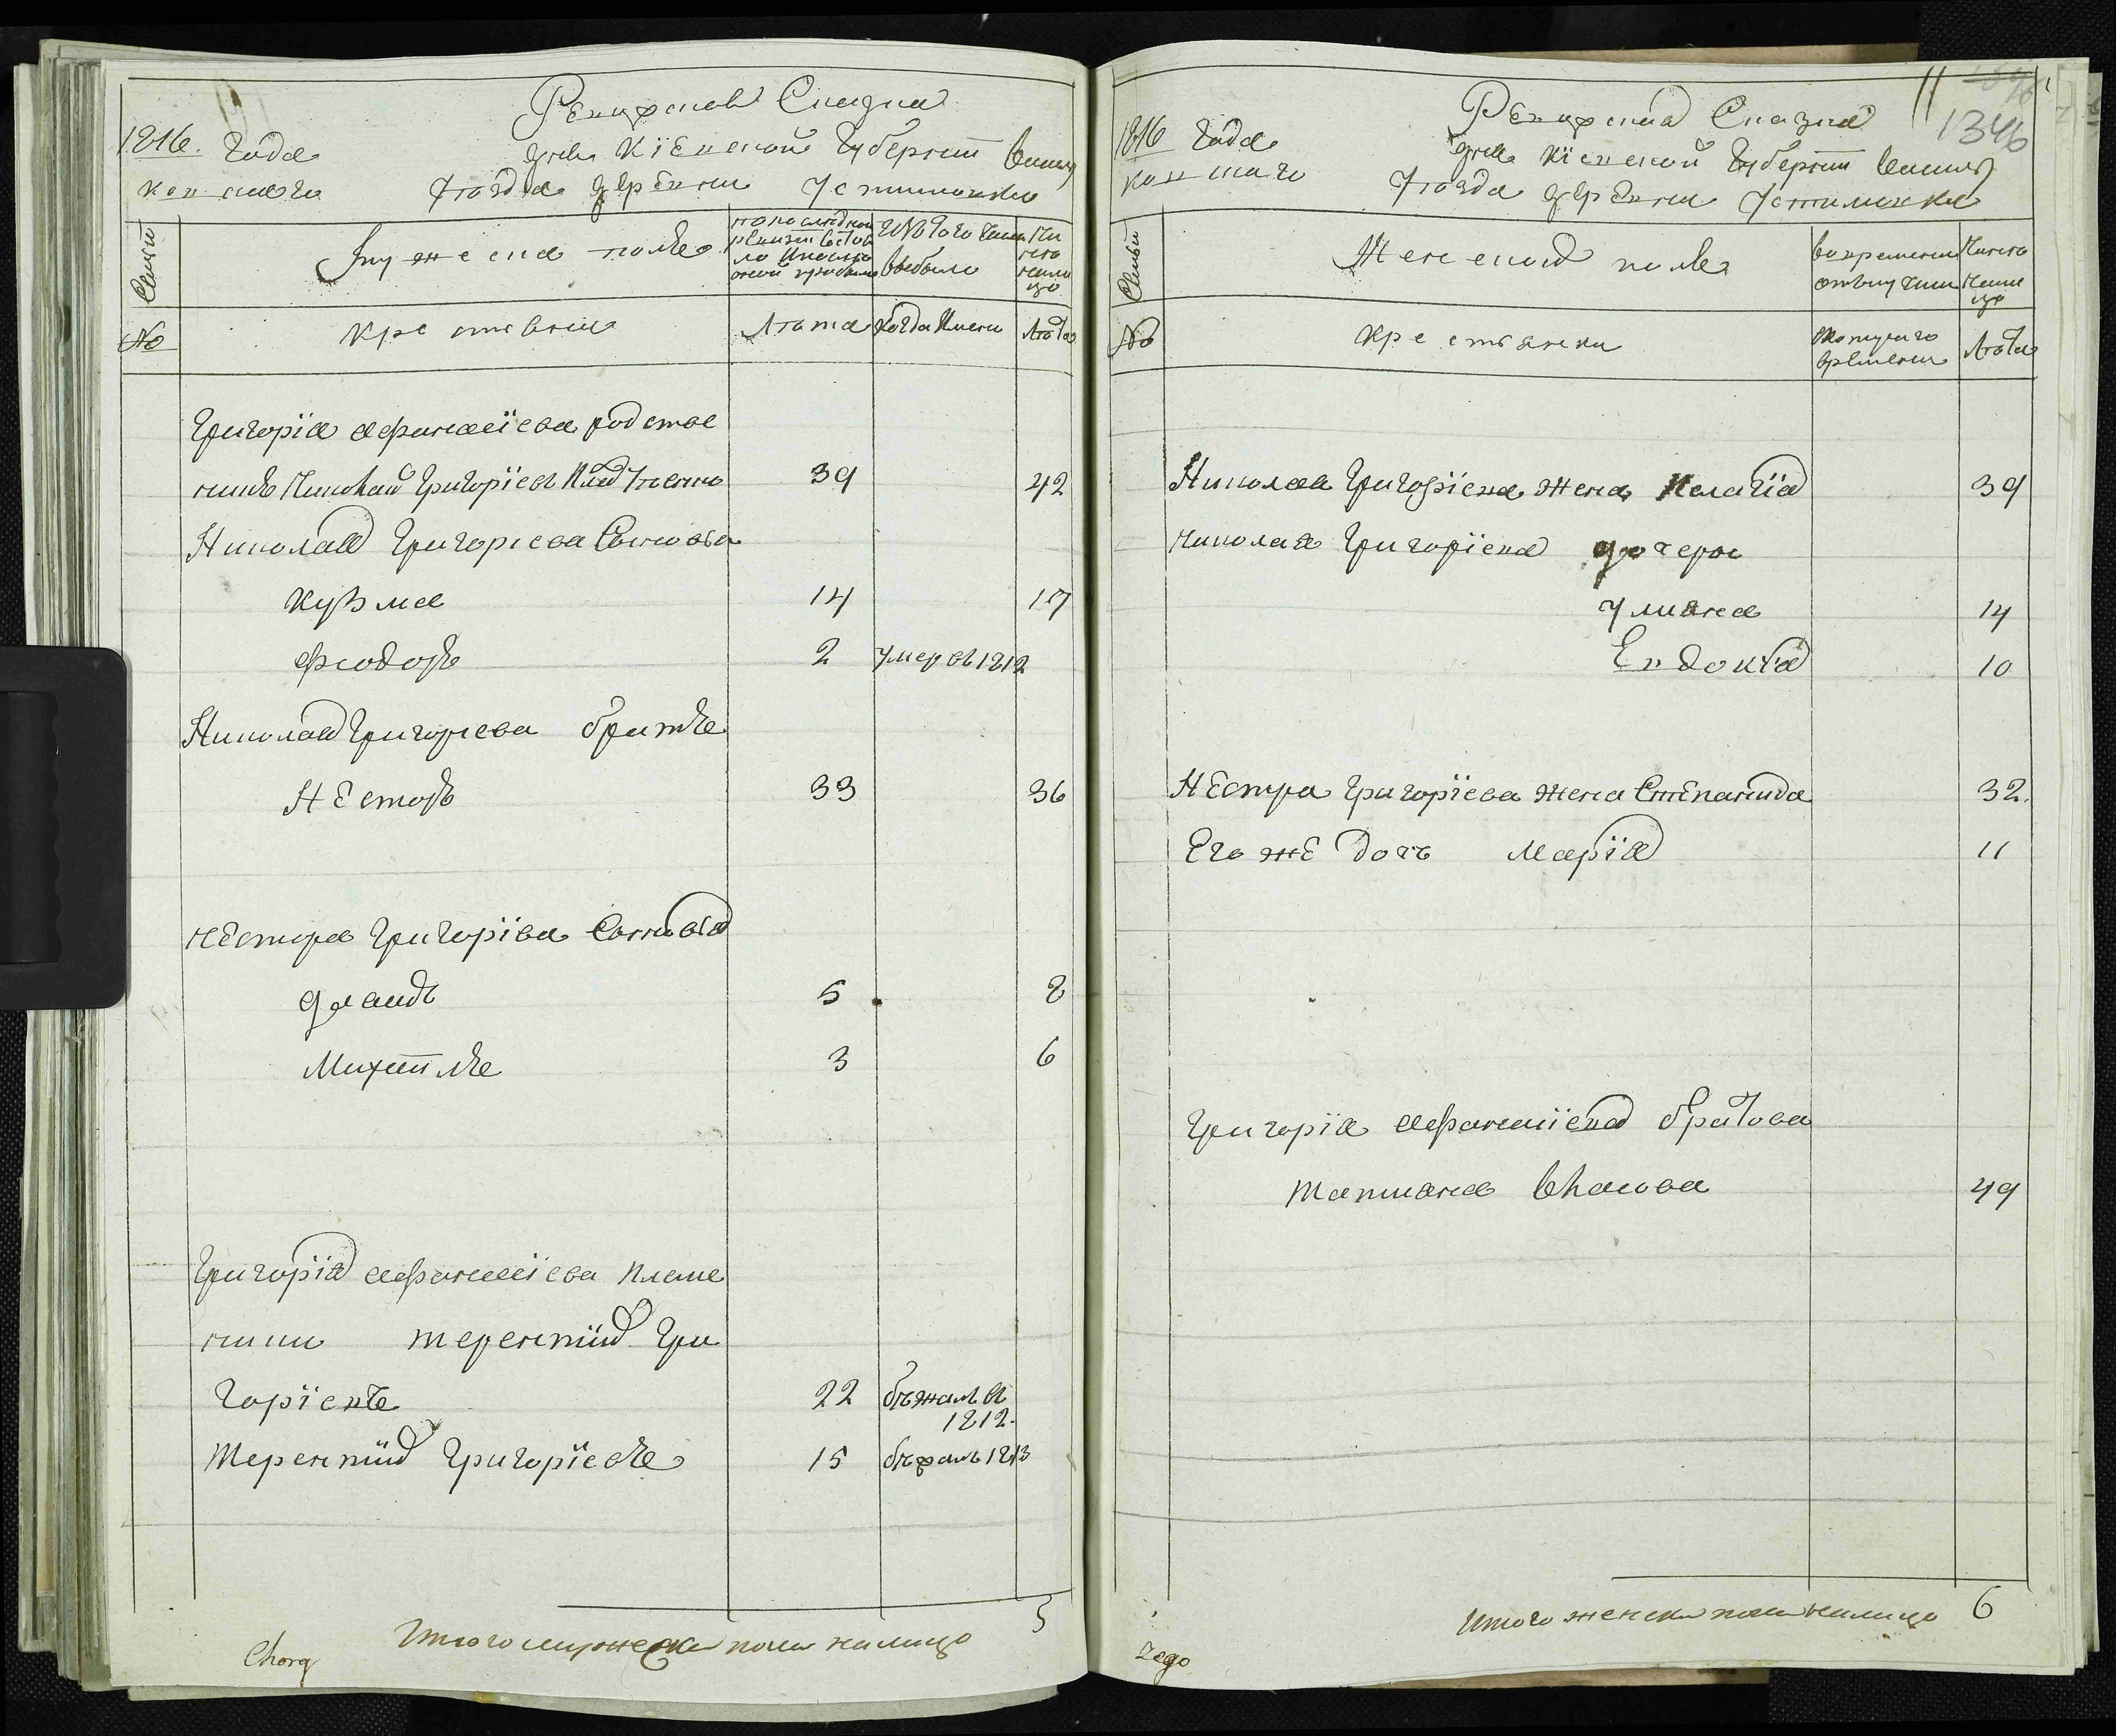 Ревизская Сказка
1816. Года
дня Кіевской Губерніи Василь
маго Уезда деревни Устимовки
Семьи
Мужеска полъ
по последней ревизіи состояло и после оной прибыло
изъ того числа выбыло
Ны не на лицо
№
Крестьяне
Лета
Когда Именно
Лета
Григорія Афанасіева родстве
никъ Николай Григоріевъ
39
42
Николая Григориева Сыновья
Кузма
14
17
Фіодоръ
2
умер въ 1812
Николая Григориева братъ
Несторъ
33
36
Нестора Григоріва Сыновья
5
8
Михаилъ
3
6
Григорія Афанасіева племе
нники Терентий Гри
горіевъ
22
бежалъ въ
1812.
Терентий Григоріевъ
15
бежалъ 1813
Итого мужеска пола на лицо
5
1346
Ревизская Сказка
1816 Года
дня Кіевской Губерніи Василь
маго Уезда деревни Устимовки
Семьи
Женской полъ
во временной отлучки
Ныне на лице
№
Крестьянки
Скотораго времени
Лета
Николая Григоріева жена Пелагія
39
Николая Григоріева дочери
Улияна
14
Евдокія
10
Нестра Григоріева жена Степанида
32.
Его же дочь Марія
11
Григорія Афанасіева братова
Татияна Власова
49
Итого женска пола на лицо
6